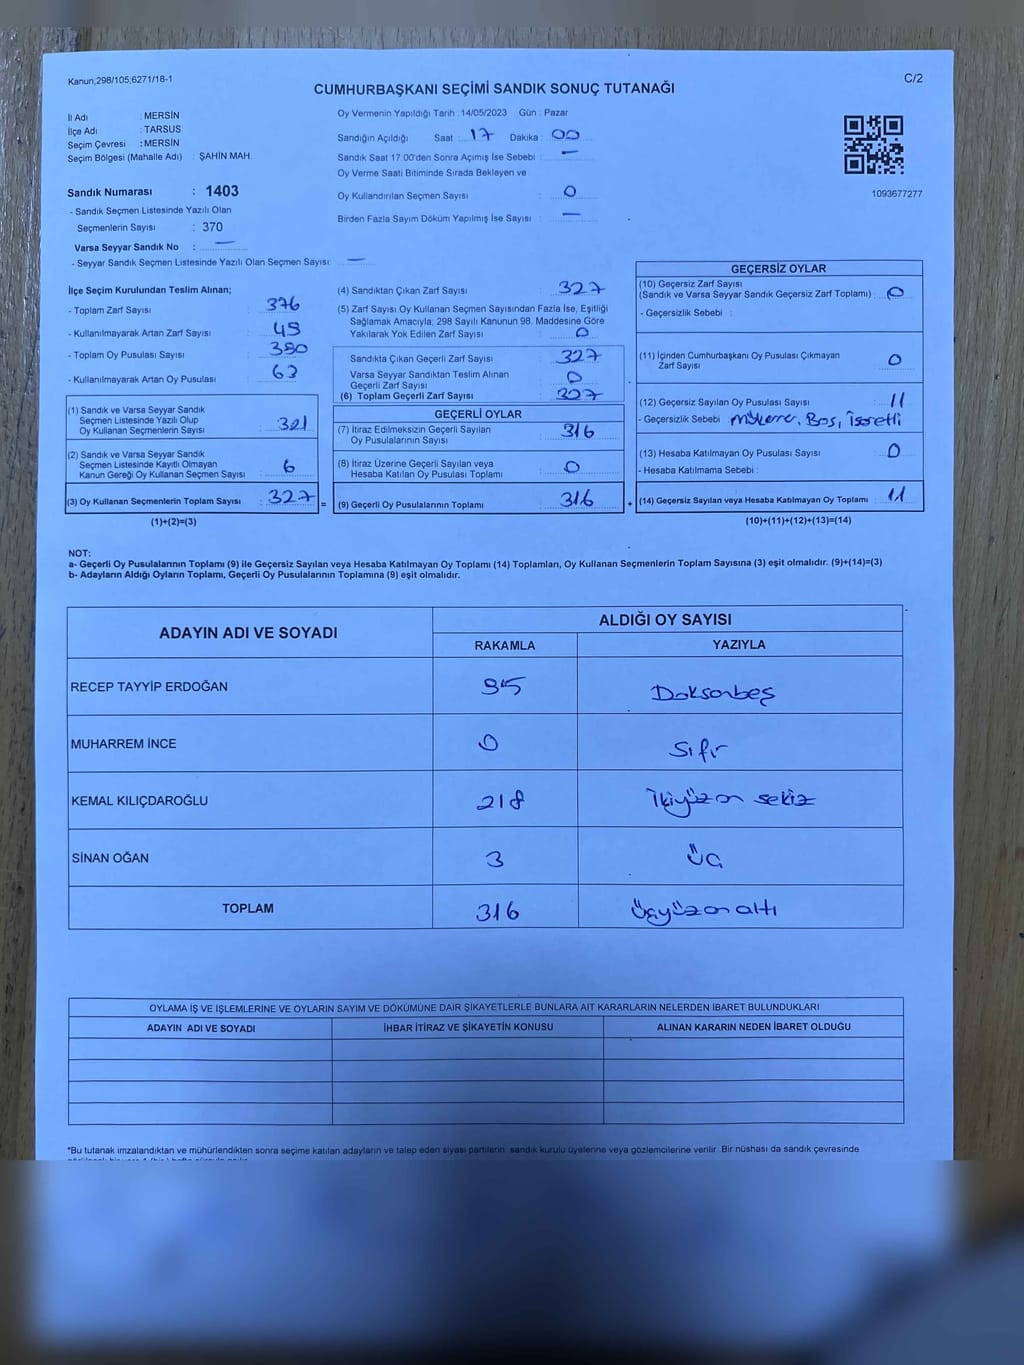 Kanun;298/105;6271/18-1
C/2
CUMHURBAŞKANI SEÇİMİ SANDIK SONUÇ TUTANAĞI
İl Adı : MERSİN
İlçe Adı : TARSUS
Seçim Çevresi : MERSİN
Seçim Bölgesi (Mahalle Adı) : ŞAHİN MAH.
Oy Vermenin Yapıldığı Tarih : 14/05/2023 Gün : Pazar
Sandığın Açıldığı Saat : 17 Dakika : 00
Sandık Saat 17:00'den Sonra Açımış İse Sebebi : —
Oy Verme Saati Bitiminde Sırada Bekleyen ve
Oy Kullandırılan Seçmen Sayısı : 0
Birden Fazla Sayım Döküm Yapılmış İse Sayısı : —
1093677277
Sandık Numarası : 1403
- Sandık Seçmen Listesinde Yazılı Olan
Seçmenlerin Sayısı : 370
Varsa Seyyar Sandık No : —
- Seyyar Sandık Seçmen Listesinde Yazılı Olan Seçmen Sayısı: —
İlçe Seçim Kurulundan Teslim Alınan;
- Toplam Zarf Sayısı : 376
- Kullanılmayarak Artan Zarf Sayısı : 49
- Toplam Oy Pusulası Sayısı : 390
- Kullanılmayarak Artan Oy Pusulası : 63
(1) Sandık ve Varsa Seyyar Sandık
Seçmen Listesinde Yazılı Olup
Oy Kullanan Seçmenlerin Sayısı : 321
(2) Sandık ve Varsa Seyyar Sandık
Seçmen Listesinde Kayıtlı Olmayan
Kanun Gereği Oy Kullanan Seçmen Sayısı : 6
(3) Oy Kullanan Seçmenlerin Toplam Sayısı : 327
(1)+(2)=(3)
(4) Sandıktan Çıkan Zarf Sayısı : 327
(5) Zarf Sayısı Oy Kullanan Seçmen Sayısından Fazla İse, Eşitliği
Sağlamak Amacıyla; 298 Sayılı Kanunun 98. Maddesine Göre
Yakılarak Yok Edilen Zarf Sayısı : 0
Sandıkta Çıkan Geçerli Zarf Sayısı : 327
Varsa Seyyar Sandıktan Teslim Alınan
Geçerli Zarf Sayısı : 0
(6) Toplam Geçerli Zarf Sayısı : 327
GEÇERLİ OYLAR
(7) İtiraz Edilmeksizin Geçerli Sayılan
Oy Pusulalarının Sayısı : 316
(8) İtiraz Üzerine Geçerli Sayılan veya
Hesaba Katılan Oy Pusulası Toplamı : 0
= (9) Geçerli Oy Pusulalarının Toplamı : 316
GEÇERSİZ OYLAR
(10) Geçersiz Zarf Sayısı
(Sandık ve Varsa Seyyar Sandık Geçersiz Zarf Toplamı) : 0
- Geçersizlik Sebebi :
(11) İçinden Cumhurbaşkanı Oy Pusulası Çıkmayan
Zarf Sayısı : 0
(12) Geçersiz Sayılan Oy Pusulası Sayısı : 11
- Geçersizlik Sebebi : Boş, İşaretli
(13) Hesaba Katılmayan Oy Pusulası Sayısı : 0
- Hesaba Katılmama Sebebi :
+ (14) Geçersiz Sayılan veya Hesaba Katılmayan Oy Toplamı : 11
(10)+(11)+(12)+(13)=(14)
NOT:
a- Geçerli Oy Pusulalarının Toplamı (9) ile Geçersiz Sayılan veya Hesaba Katılmayan Oy Toplamı (14) Toplamları, Oy Kullanan Seçmenlerin Toplam Sayısına (3) eşit olmalıdır. (9)+(14)=(3)
b- Adayların Aldığı Oyların Toplamı, Geçerli Oy Pusulalarının Toplamına (9) eşit olmalıdır.
ADAYIN ADI VE SOYADI
ALDIĞI OY SAYISI
RAKAMLA YAZIYLA
RECEP TAYYİP ERDOĞAN 95 Doksanbeş
MUHARREM İNCE 0 Sıfır
KEMAL KILIÇDAROĞLU 218 İkiyüzon sekiz
SİNAN OĞAN 3 Üç
TOPLAM 316 Üçyüzonaltı
OYLAMA İŞ VE İŞLEMLERİNE VE OYLARIN SAYIM VE DÖKÜMÜNE DAİR ŞİKAYETLERLE BUNLARA AİT KARARLARIN NELERDEN İBARET BULUNDUKLARI
ADAYIN ADI VE SOYADI İHBAR İTİRAZ VE ŞİKAYETİN KONUSU ALINAN KARARIN NEDEN İBARET OLDUĞU
*Bu tutanak imzalandıktan ve mühürlendikten sonra seçime katılan adayların ve talep eden siyasi partilerin sandık kurulu üyelerine veya gözlemcilerine verilir. Bir nüshası da sandık çevresinde